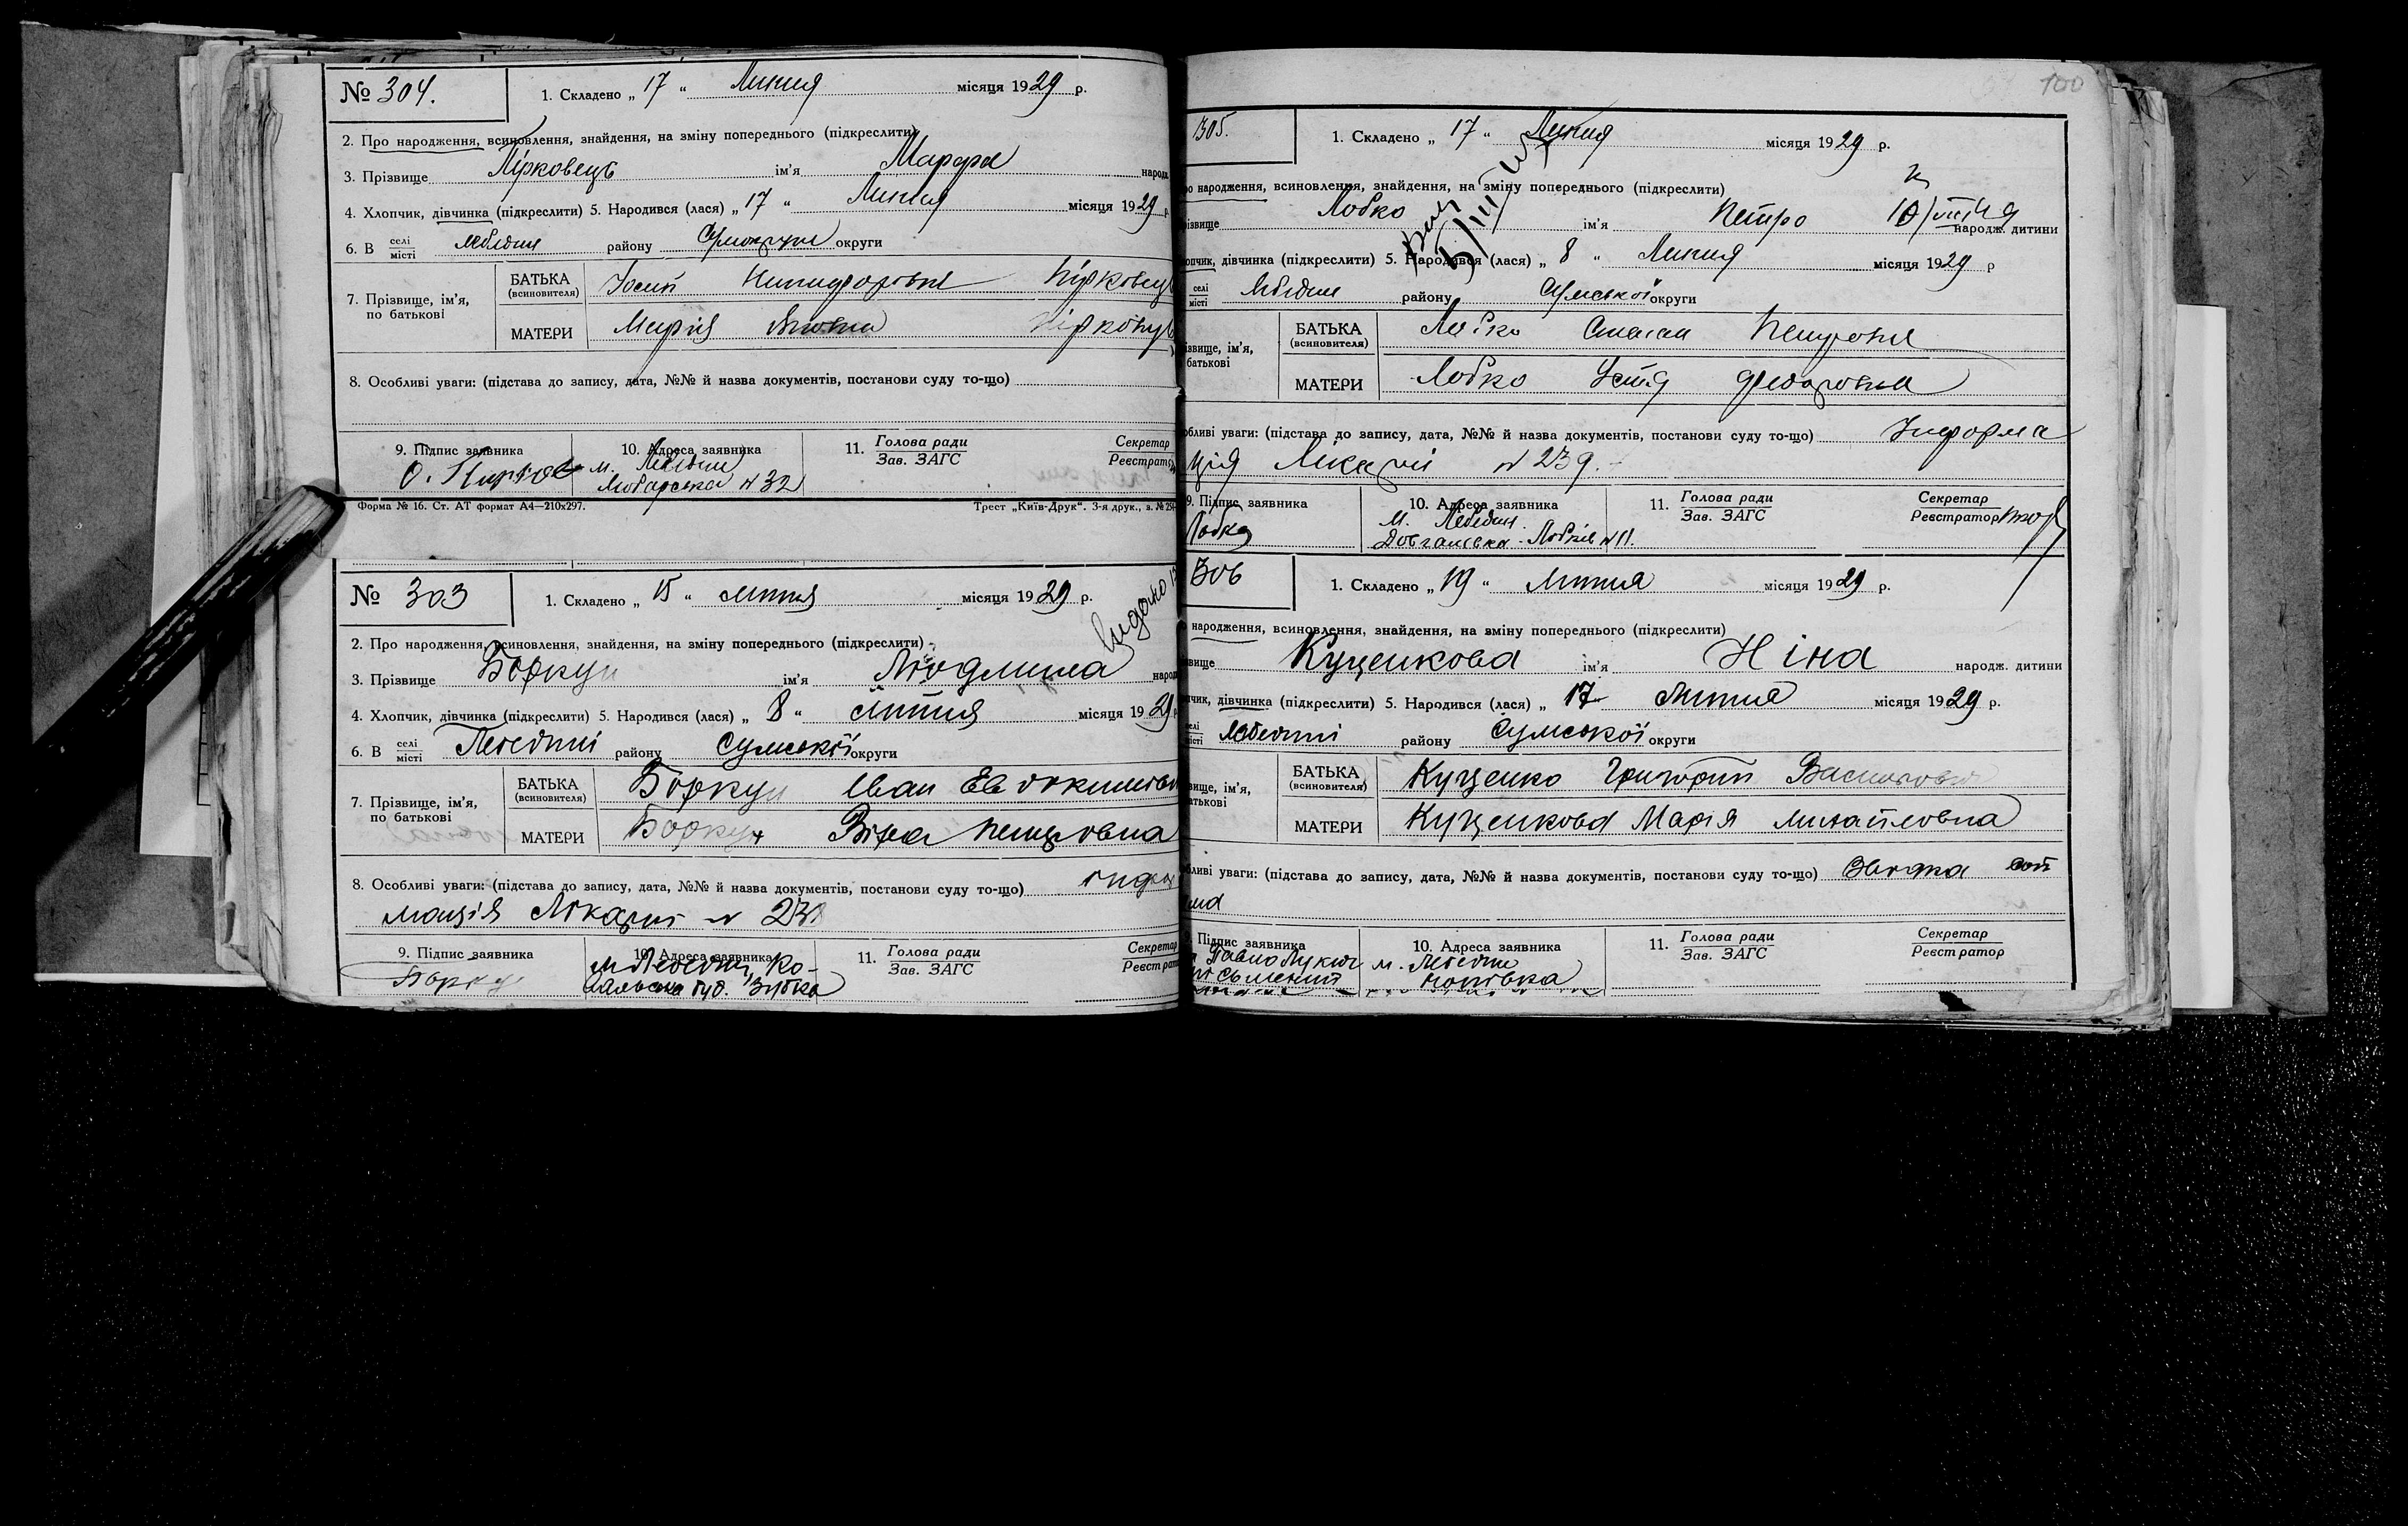 № 304.
1. Складено „ 17 “ Липня місяця 1929 р.
2. Про народження, всиновлення, знайдення, на зміну попереднього (підкреслити)
3. Прізвище Пірковець ім'я Марфа народж
4. Хлопчик, дівчинка (підкреслити) 5. Народився (лася) „ 17 “ Липня місяця 1929 р
6. В селі місті Лебедин району Сумськ округи
7. Прізвище, ім'я, по батькові
БАТЬКА (всиновителя) Йосип Пірковець
МАТЕРИ Марія
8. Особливі уваги: (підстава до запису, дата, №№ й назва документів, постанови суду то-що)
9. Підпис заявника
10. Адреса заявника м. Лебедин
№ 32
11. Голова ради Зав. ЗАГС
Секретар Реєстратор
Форма № 16. Ст. АТ формат А4—210х297.
Трест „Київ-Друк“. 3-я друк., з. №
№ 303
1. Складено „ 15 “ липня місяця 1929 р.
Видано
2. Про народження, всиновлення, знайдення, на зміну попереднього (підкреслити)
3. Прізвище Боркун ім'я Людмила народ
4. Хлопчик, дівчинка (підкреслити) 5. Народився (лася) „ 8 “ липня місяця 1929
6. В селі місті Лебедині району Сумської округи
7. Прізвище, ім'я, по батькові
БАТЬКА (всиновителя) Боркун Іван Евдокимов
МАТЕРИ Боркун Віра Петровна
8. Особливі уваги: (підстава до запису, дата, №№ й назва документів, постанови суду то-що) інфор
мація Лікарні №
9. Підпис заявника Борку
10. Адреса заявника м Лебедин, Ко-
буд. Зубка
11. Голова ради Зав. ЗАГС
Секретар Реєстрат
100
305.
1. Складено „ 17 “ Липня місяця 1929 р.
о народження, всиновлення, знайдення, на зміну попереднього (підкреслити)
ізвище Лобко ім'я Петро народж. дитини
опчик, дівчинка (підкреслити) 5. Народився (лася) „ 8 “ Липня місяця 1929 р
селі місті Лебедин району Сумської округи
ізвище, ім'я, батькові
БАТЬКА (всиновителя) Лобко Степан Петрович
МАТЕРИ Лобко Устя Федоровна
обливі уваги: (підстава до запису, дата, №№ й назва документів, постанови суду то-що) Информа
ція Лікарні № 239.
9. Підпис заявника Лобко
10. Адреса заявника м. Лебедин.
№ 11.
11. Голова ради Зав. ЗАГС
Секретар Реєстратор
306
1. Складено „ 19 “ липня місяця 1929 р.
народження, всиновлення, знайдення, на зміну попереднього (підкреслити)
звище Куценкова ім'я Ніна народж. дитини
пчик, дівчинка (підкреслити) 5. Народився (лася) „ 17 липня місяця 1929 р.
селі місті Лебедині району Сумської округи
звище, ім'я, батькові
БАТЬКА (всиновителя) Куценко Григорій
МАТЕРИ Куценкова Марія Михайловна
бливі уваги: (підстава до запису, дата, №№ й назва документів, постанови суду то-що)
9. Підпис заявника Павло Лукич
10. Адреса заявника м. Лебедин
11. Голова ради Зав. ЗАГС
Секретар Реєстратор